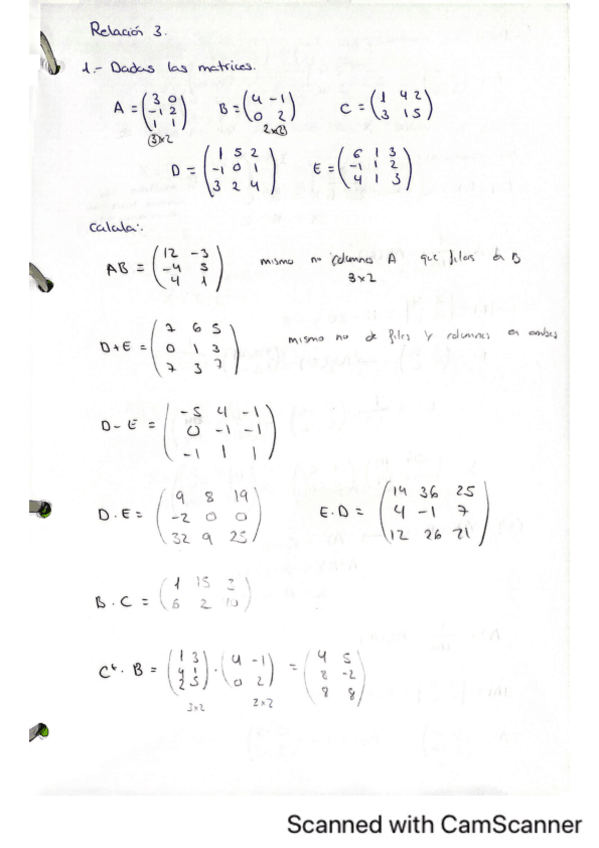 Relación 3.
1.- Dadas las matrices.
A = (3 0; -1 2; 1 1) B = (4 -1; 0 2) C = (1 4 2; 3 1 5)
3x2 2x2
D = (1 5 2; -1 0 1; 3 2 4) E = (6 1 3; -1 1 2; 4 1 3)
Calcula:
AB = (12 -3; -4 5; 4 1) mismo no columnas A que filas en B
3x2
D+E = (7 6 5; 0 1 3; 7 3 7) mismo no de filas y columnas en ambas
D-E = (-5 4 -1; 0 -1 -1; -1 1 1)
D·E = (9 8 19; -2 0 0; 32 9 25) E·D = (14 36 25; 4 -1 7; 12 26 21)
B·C = (1 15 3; 6 2 10)
Cᵗ·B = (1 3; 4 1; 2 5)·(4 -1; 0 2) = (4 5; -2; 8 8)
3x2 2x2
Scanned with CamScanner